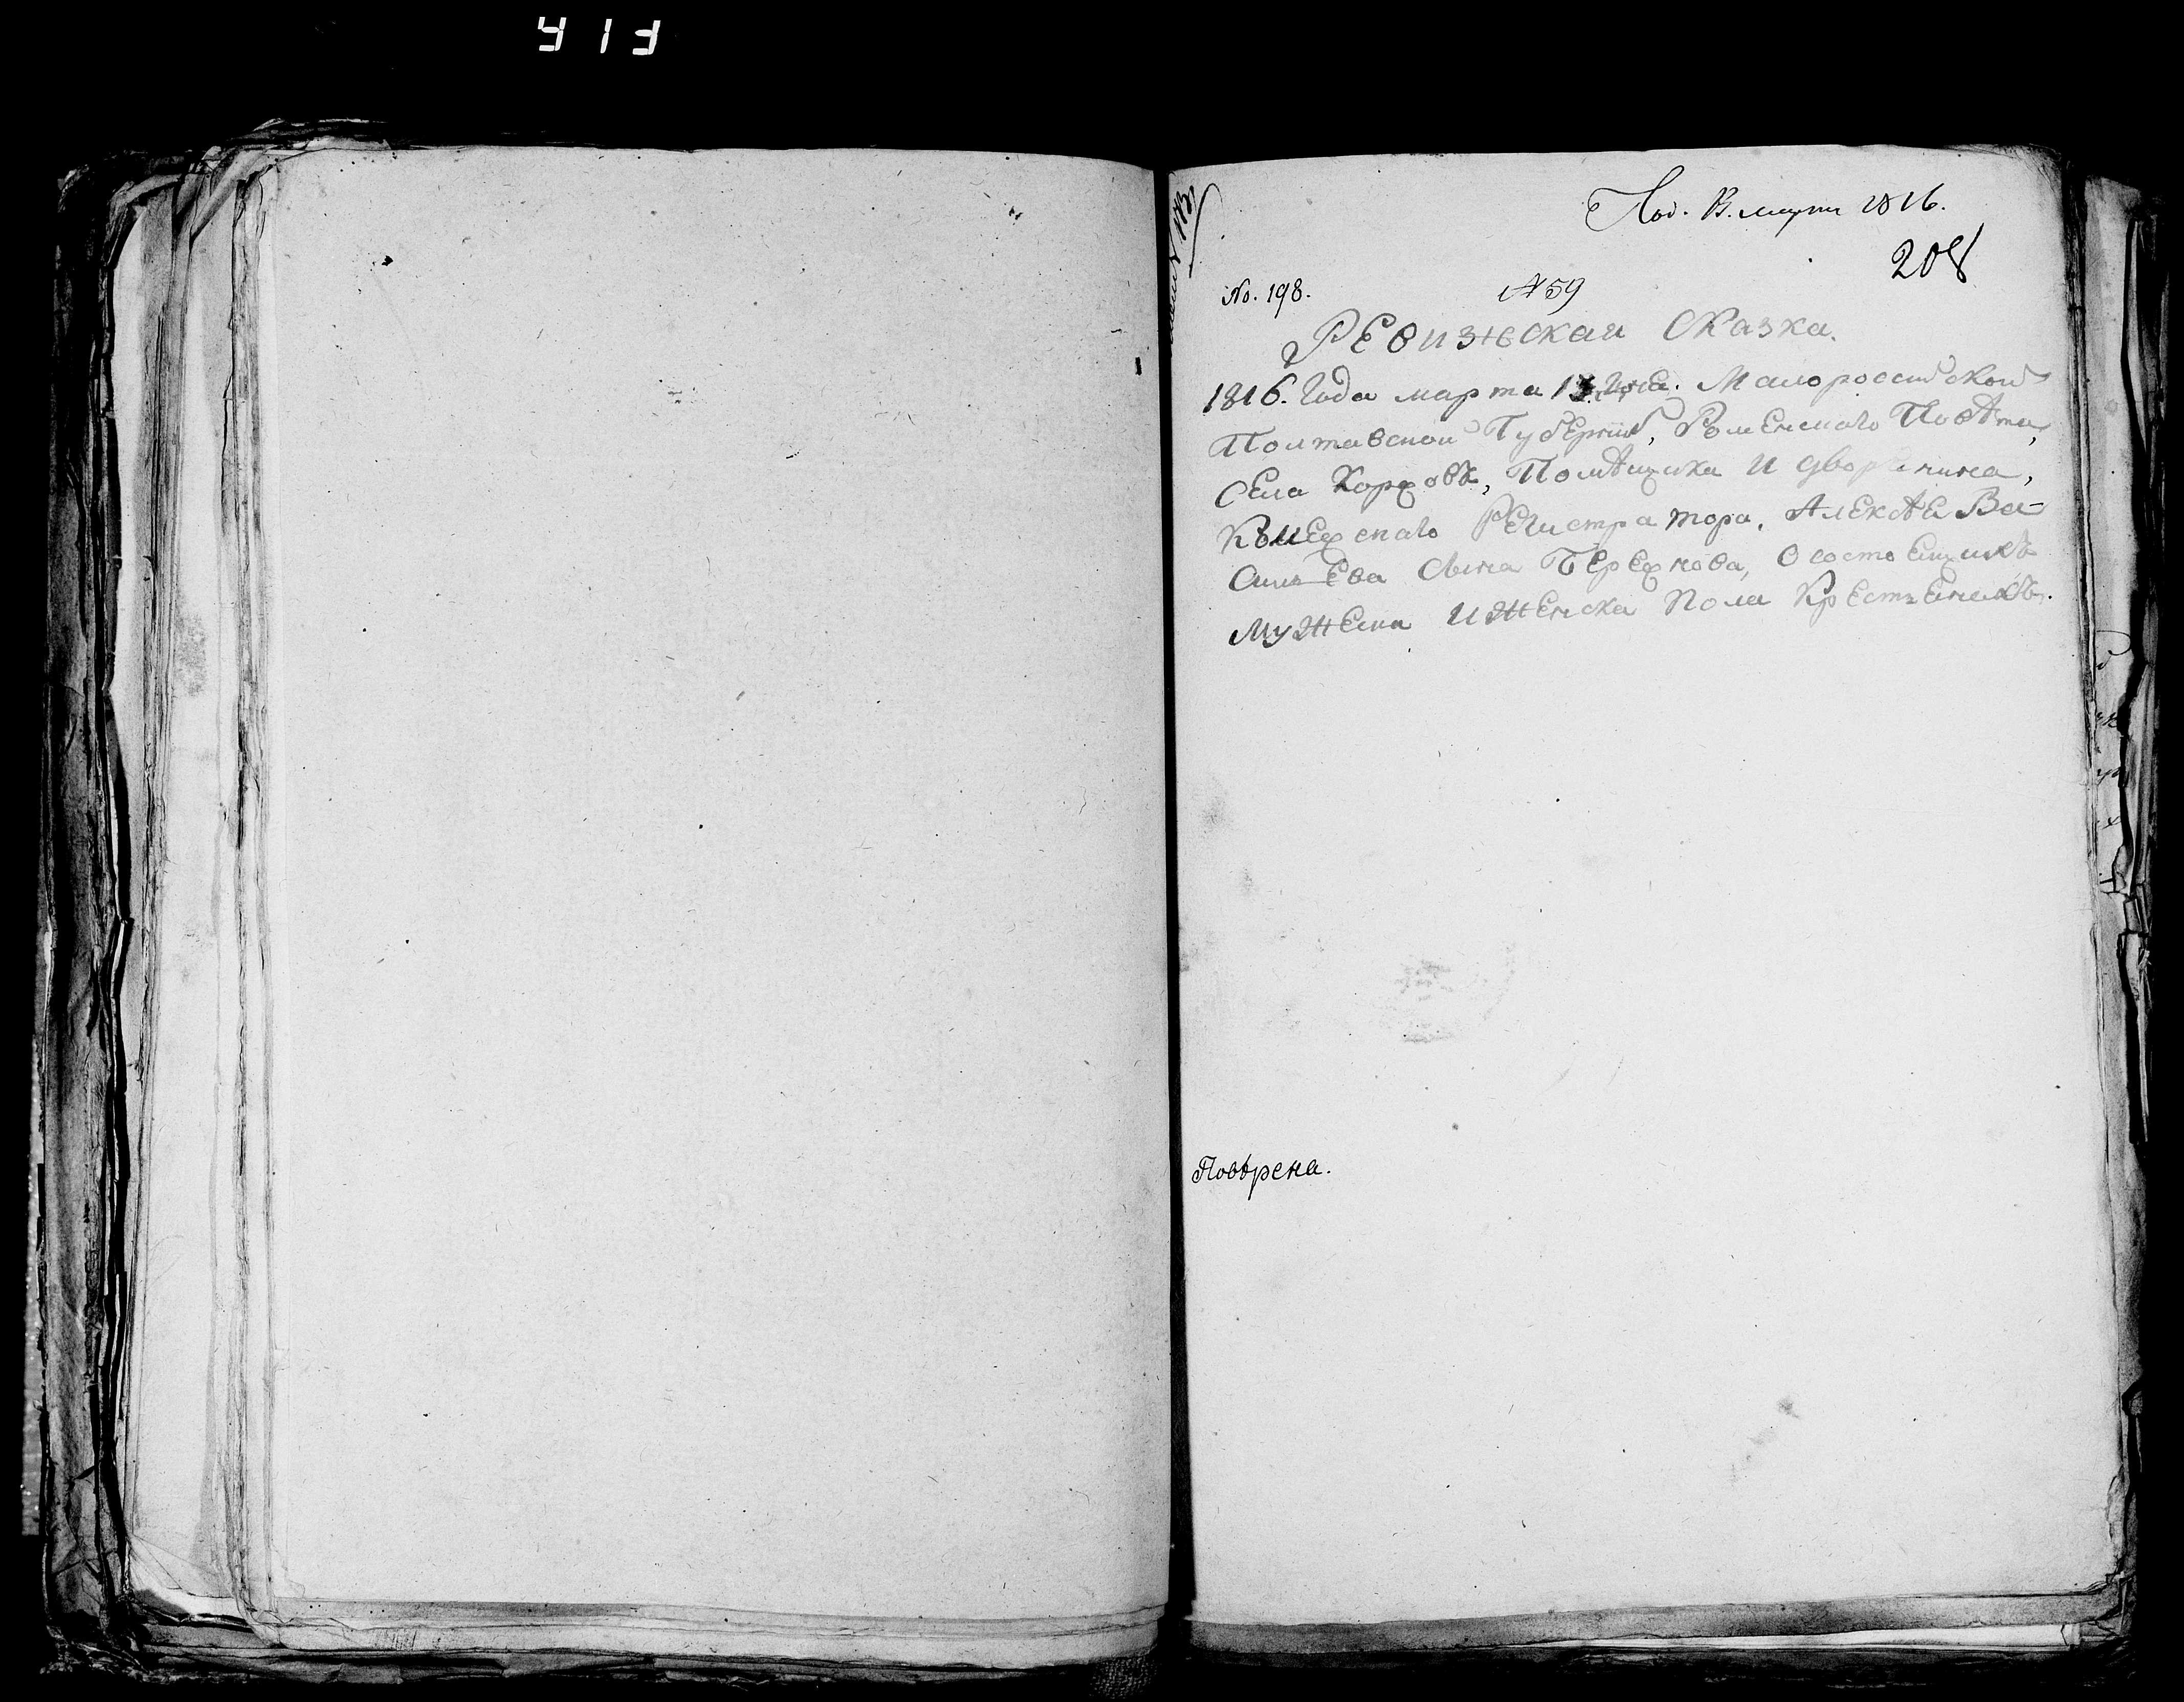 Под. 13. марта 1816.
208
No. 198.
№ 59
Ревизъская Сказка.
1816. Года марта 13. Дня. Малороссійской
Полтавской Губерніи, Роменскаго Повѣта,
Села Коровѣ, Помѣщика и дворенина,
Регистратора, Алексѣе Ва-
Силъева Сына о состоещихъ
мужеска и женска пола крестъенехъ.
Повѣрена.